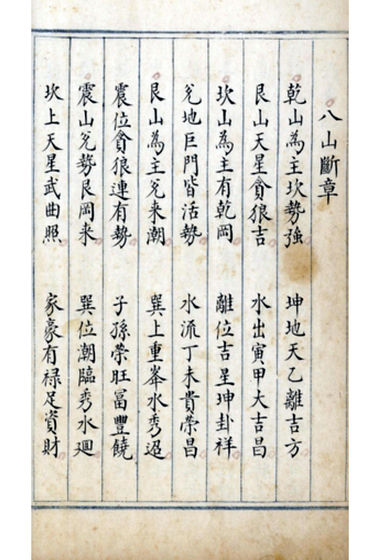 八山斷章
乾山為主坎勢強 坤地天乙離吉方
艮山天星貪狼吉 水出寅甲大吉昌
坎山為主有乾岡 離位吉星坤卦祥
兊地巨門皆活勢 水流丁未貴榮昌
艮山為主兊来潮 巽上重峯水秀迢
震位貪狼連有勢 子孫榮旺冨豐饒
震山兊勢艮岡来 巽位潮臨秀水廻
坎上天星武曲照 家豪有禄足資財